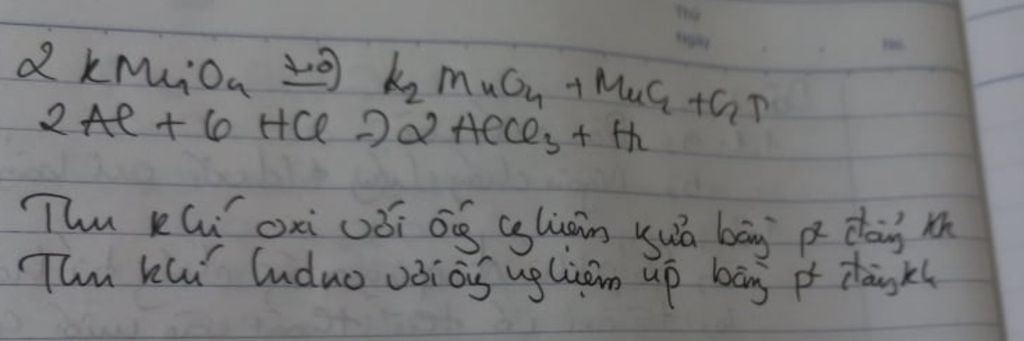 Thứ
Ngày No.
2 KMnO4 t°→ K2MnO4 + MnO2 + O2↑
2 Al + 6 HCl → 2 AlCl3 + H2
Thu khí oxi với ống nghiệm ngửa bằng p² đẩy kk
Thu khí hidro với ống nghiệm úp bằng p² đẩy kk